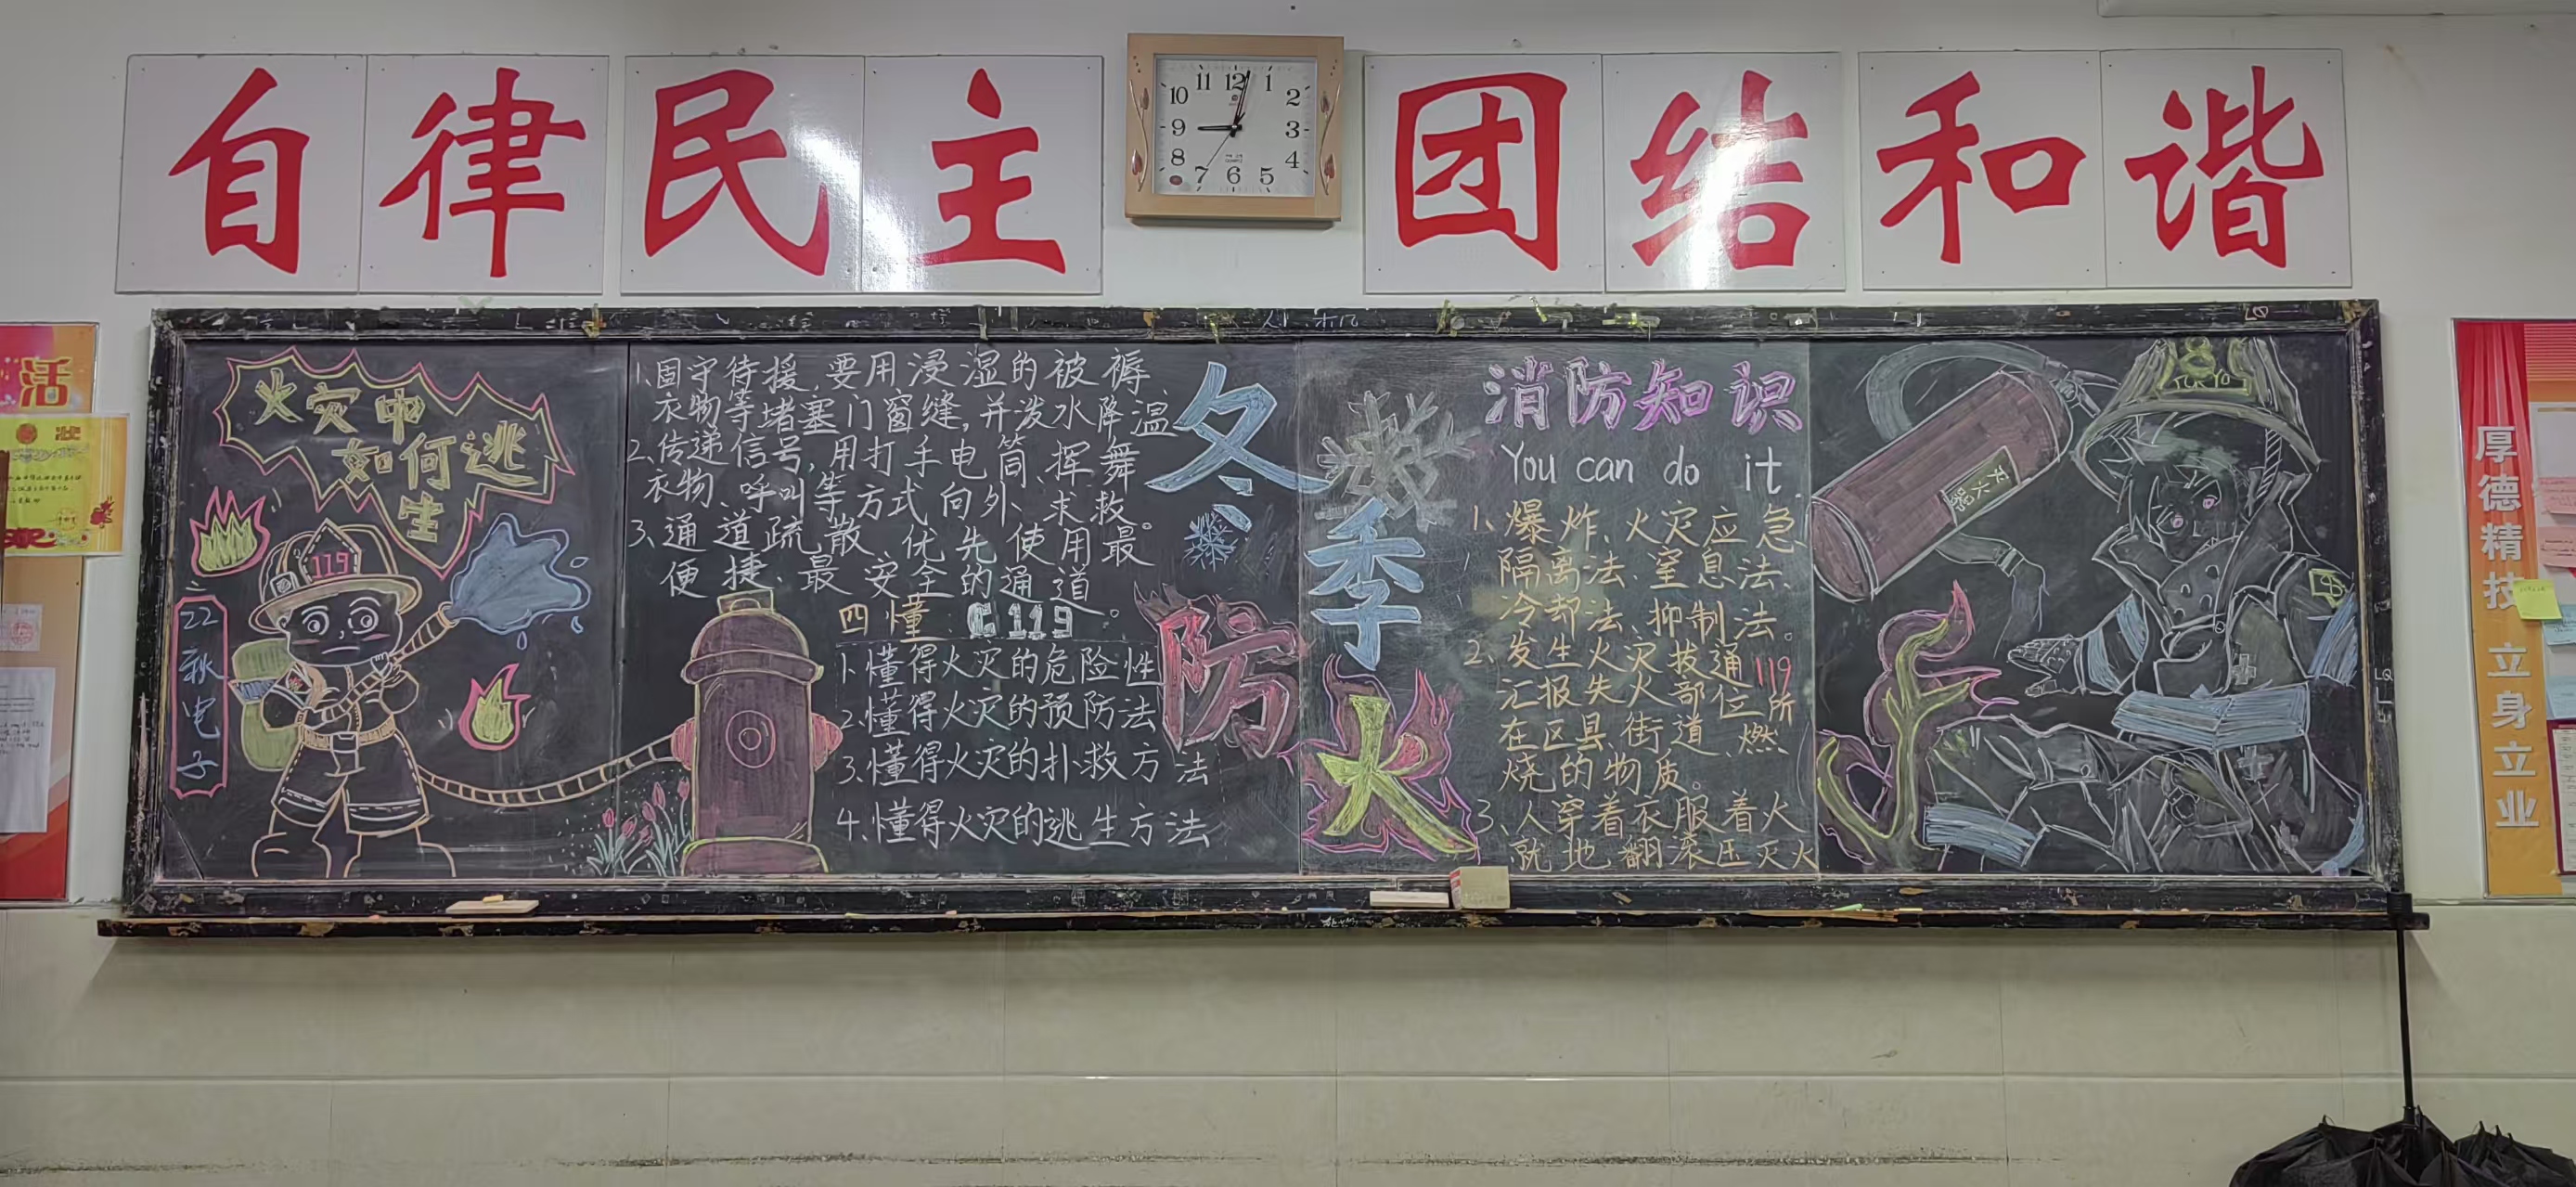 自律民主
团结和谐
11 12 1
10 2
9 3
8 4
7 6 5
活
火灾中
如何逃
生
119
22秋电子
1、固守待援,要用浸湿的被褥、
衣物等堵塞门窗缝,并泼水降温
2、传递信号,用打手电筒、挥舞
衣物、呼叫等方式向外求救。
3、通道疏散,优先使用最
便捷、最安全的通道。
四懂 119
1、懂得火灾的危险性
2、懂得火灾的预防法
3、懂得火灾的扑救方法
4、懂得火灾的逃生方法
冬季
防火
消防知识
You can do it.
1、爆炸、火灾应急
隔离法、窒息法、
冷却法、抑制法。
2、发生火灾拨通119
汇报失火部位所
在区县、街道、燃
烧的物质。
3、人穿着衣服着火
就地翻滚压灭火
灭火器
8
厚德精技 立身立业